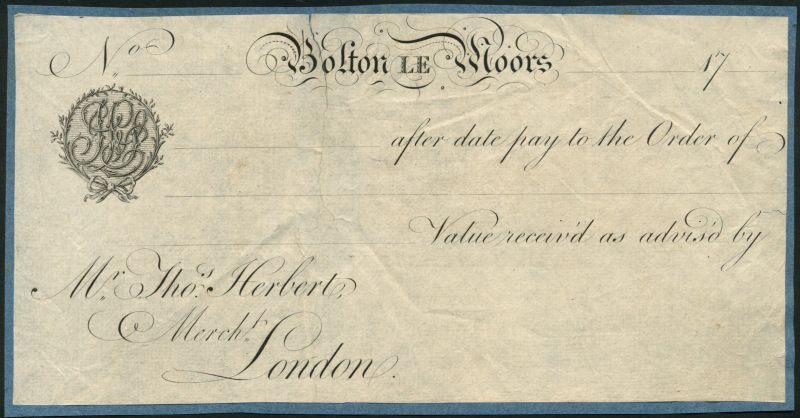 No. Bolton LE Moors 17
after date pay to the Order of
Value receiv'd as advis'd by
Mr. Thos. Herbert,
Mercht.
London.